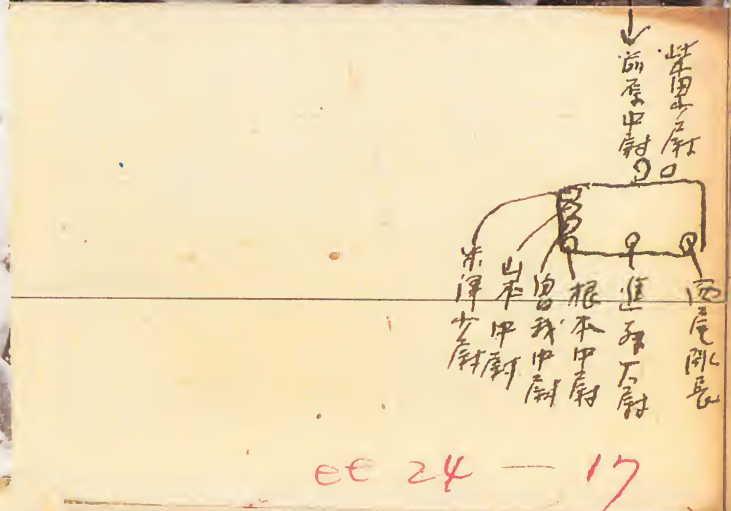 柴田少尉
前原中尉
西尾隊長
進藤大尉
根本中尉
曽我中尉
山本中尉
米澤少尉
24 — 17